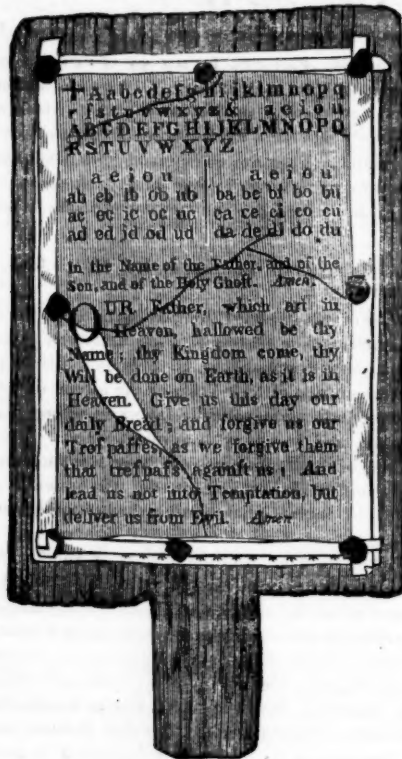 ✚ A a b c d e f g h i j k l m n o p q
r ſ s t u v w x y z & a e i o u
A B C D E F G H I J K L M N O P Q
R S T U V W X Y Z
a e i o u a e i o u
ab eb ib ob ub ba be bi bo bu
ac ec ic oc uc ca ce ci co cu
ad ed id od ud da de di do du
In the Name of the Father, and of the
Son, and of the Holy Ghoſt. Amen.
OUR Father, which art in
Heaven, hallowed be thy
Name; thy Kingdom come, thy
Will be done on Earth, as it is in
Heaven. Give us this day our
daily Bread; and forgive us our
Treſpaſſes, as we forgive them
that treſpaſs againſt us: And
lead us not into Temptation, but
deliver us from Evil. Amen